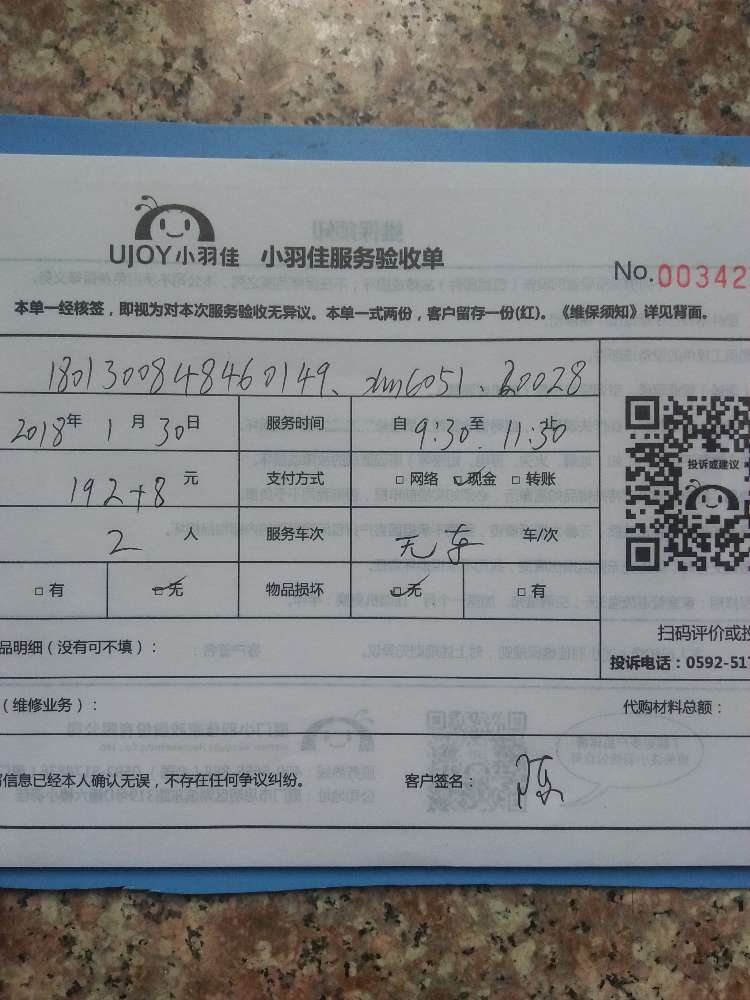 UJOY小羽佳 小羽佳服务验收单
No.00342
本单一经核签，即视为对本次服务验收无异议。本单一式两份，客户留存一份(红)。《维保须知》详见背面。
180130084846 0149、xm6051、20028
2018年 1月30日 服务时间 自9:30至11:30止
192+8元 支付方式 □网络 ☑现金 □转账
投诉或建议
2人 服务车次 无车 车/次
□有 ☑无 物品损坏 ☑无 □有
扫码评价或投
品明细（没有可不填）：
投诉电话：0592-517
（维修业务）： 代购材料总额：
信息已经本人确认无误，不存在任何争议纠纷。 客户签名： 陈